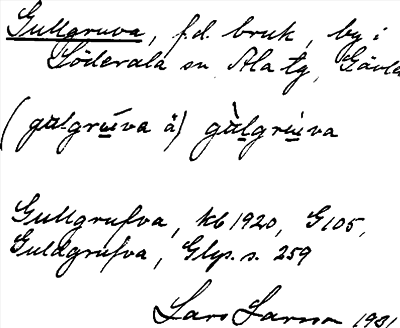 Gullgruva, f.d. bruk, by i
Söderala sn Ala tg, Gävle
(galgrúva ä) gàlgrùva
Gullgrufva, kb 1920, G 105,
Guldgrufva, Glp. s. 259
Lars Larsson 1931